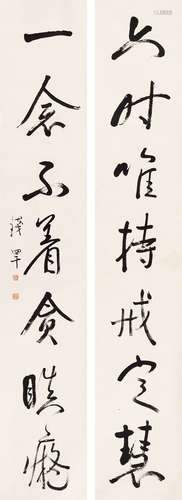 六时唯持戒定慧
一念不着贪瞋痴